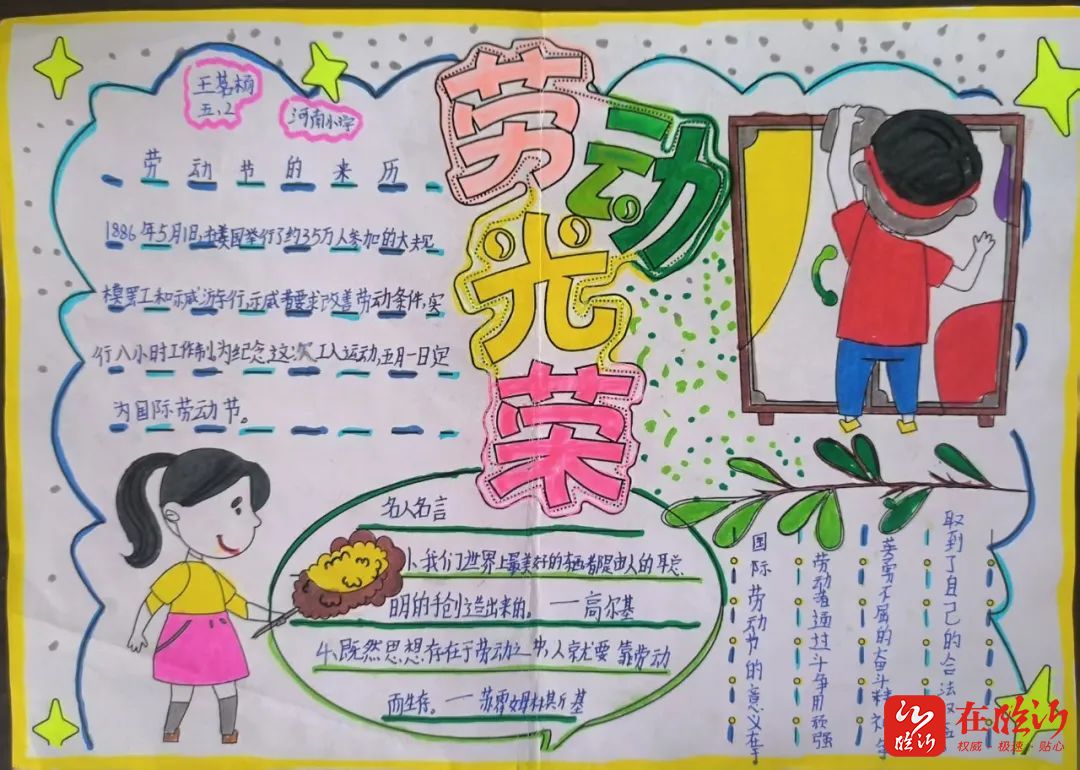 劳动光荣
王茗
五、2
河南小学
劳动节的来历
1886年5月1日,由美国举行了约35万人参加的大规
模罢工和示威游行,示威者要求改善劳动条件,实
行八小时工作制,为纪念这次工人运动,五月一日定
为国际劳动节。
名人名言
1、我们世界上最美好的东西都是由人的耳总
明的手创造出来的。——高尔基
4、既然思想存在于劳动之中,人就要靠劳动
而生存。——苏霍姆林斯基
国际劳动节的意义在于
劳动者通过斗争用顽强
英勇不屈的奋斗精神争
取到了自己的合法权益
在临沂
权威·极速·贴心